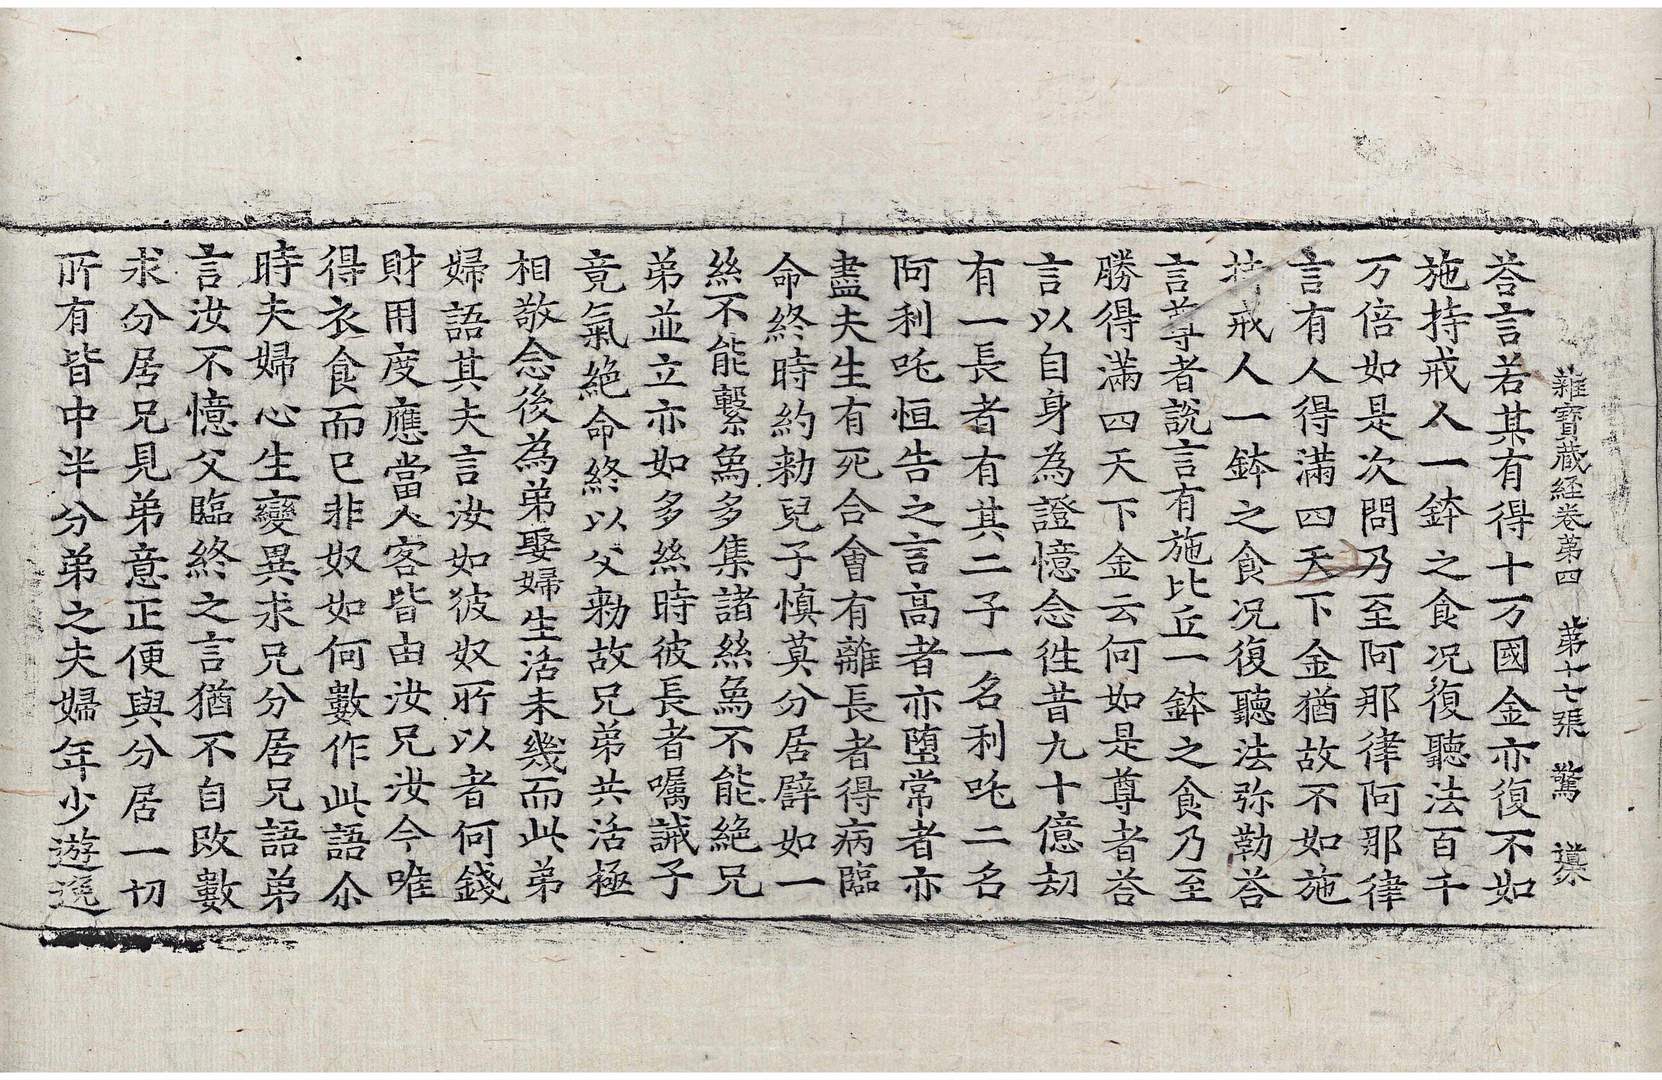 雜寶蔵経卷第四 第十七張 驚
荅言若某有得十万國金亦復不如
施持戒人一鉢之食况復聽法百千
万倍如是次問乃至阿那律阿那律
言有人得滿四天下金猶故不如施
持戒人一鉢之食况復聽法弥勒荅
言尊者說言有施比丘一鉢之食乃至
勝得滿四天下金云何如是尊者荅
言以自身為證憶念徃昔九十億劫
有一長者有其二子一名利吒二名
阿利吒恒告之言高者亦堕常者亦
盡夫生有死合會有離長者得病臨
命終時約勑兒子慎莫分居譬如一
絲不能繫烏多集諸絲烏不能絕兄
弟並立亦如多絲時彼長者囑誡子
竟氣絕命終以父勑故兄弟共活極
相敬念後為弟娶婦生活未幾而此弟
婦語其夫言汝如彼奴所以者何錢
財用度應當人客皆由汝兄汝今唯
得衣食而已非奴如何數作此語尒
時夫婦心生變異求兄分居兄語弟
言汝不憶父臨終之言猶不自改數
求分居兄見弟意正便與分居一切
所有皆中半分弟之夫婦年少遊逸